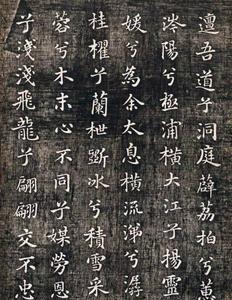 邅吾道兮洞庭薜荔柏兮蕙
涔陽兮極浦橫大江兮揚靈
媛兮為余太息橫流涕兮潺
桂櫂兮蘭枻斲冰兮積雪采
蓉兮木末心不同兮媒勞恩
兮淺淺飛龍兮翩翩交不忠